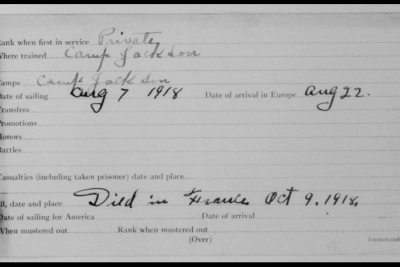 Rank when first in service Private
Where trained Camp Jackson
Camps Camp Jackson
Date of sailing Aug 7 1918 Date of arrival in Europe Aug 22.
Transfers
Promotions
Honors
Battles
Casualties (including taken prisoner) date and place
Ill, date and place Died in France Oct 9, 1918,
Date of sailing for America Date of arrival
When mustered out Rank when mustered out
(Over)